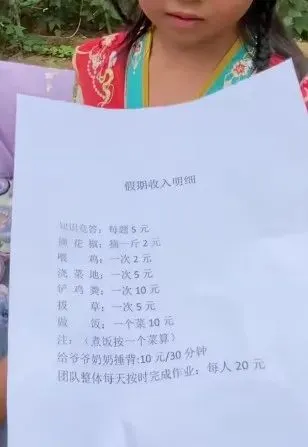 假期收入明细
知识竞答：每题 5 元
摘 花 椒：摘一斤 2 元
喂　　鸡：一次 2 元
浇 菜 地：一次 5 元
铲 鸡 粪：一次 10 元
拔　　草：一次 5 元
做　　饭：一个菜 10 元
注：（煮饭按一个菜算）
给爷爷奶奶捶背:10 元/30 分钟
团队整体每天按时完成作业：每人 20 元